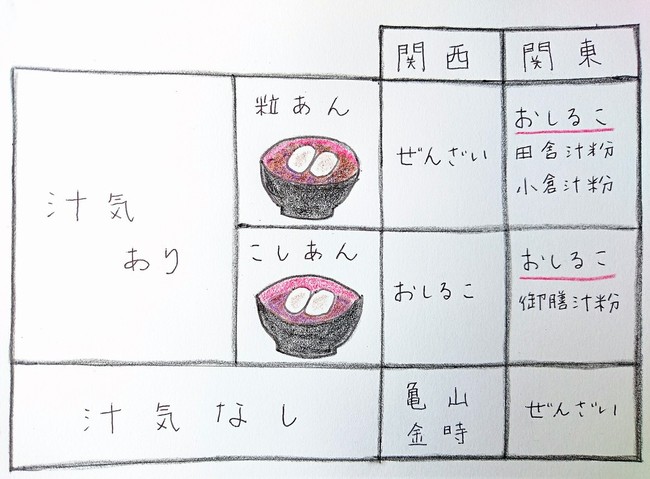 関西
関東
粒あん
ぜんざい
おしるこ
田舎汁粉
小倉汁粉
汁気
あり
こしあん
おしるこ
おしるこ
御膳汁粉
汁気なし
亀山
金時
ぜんざい